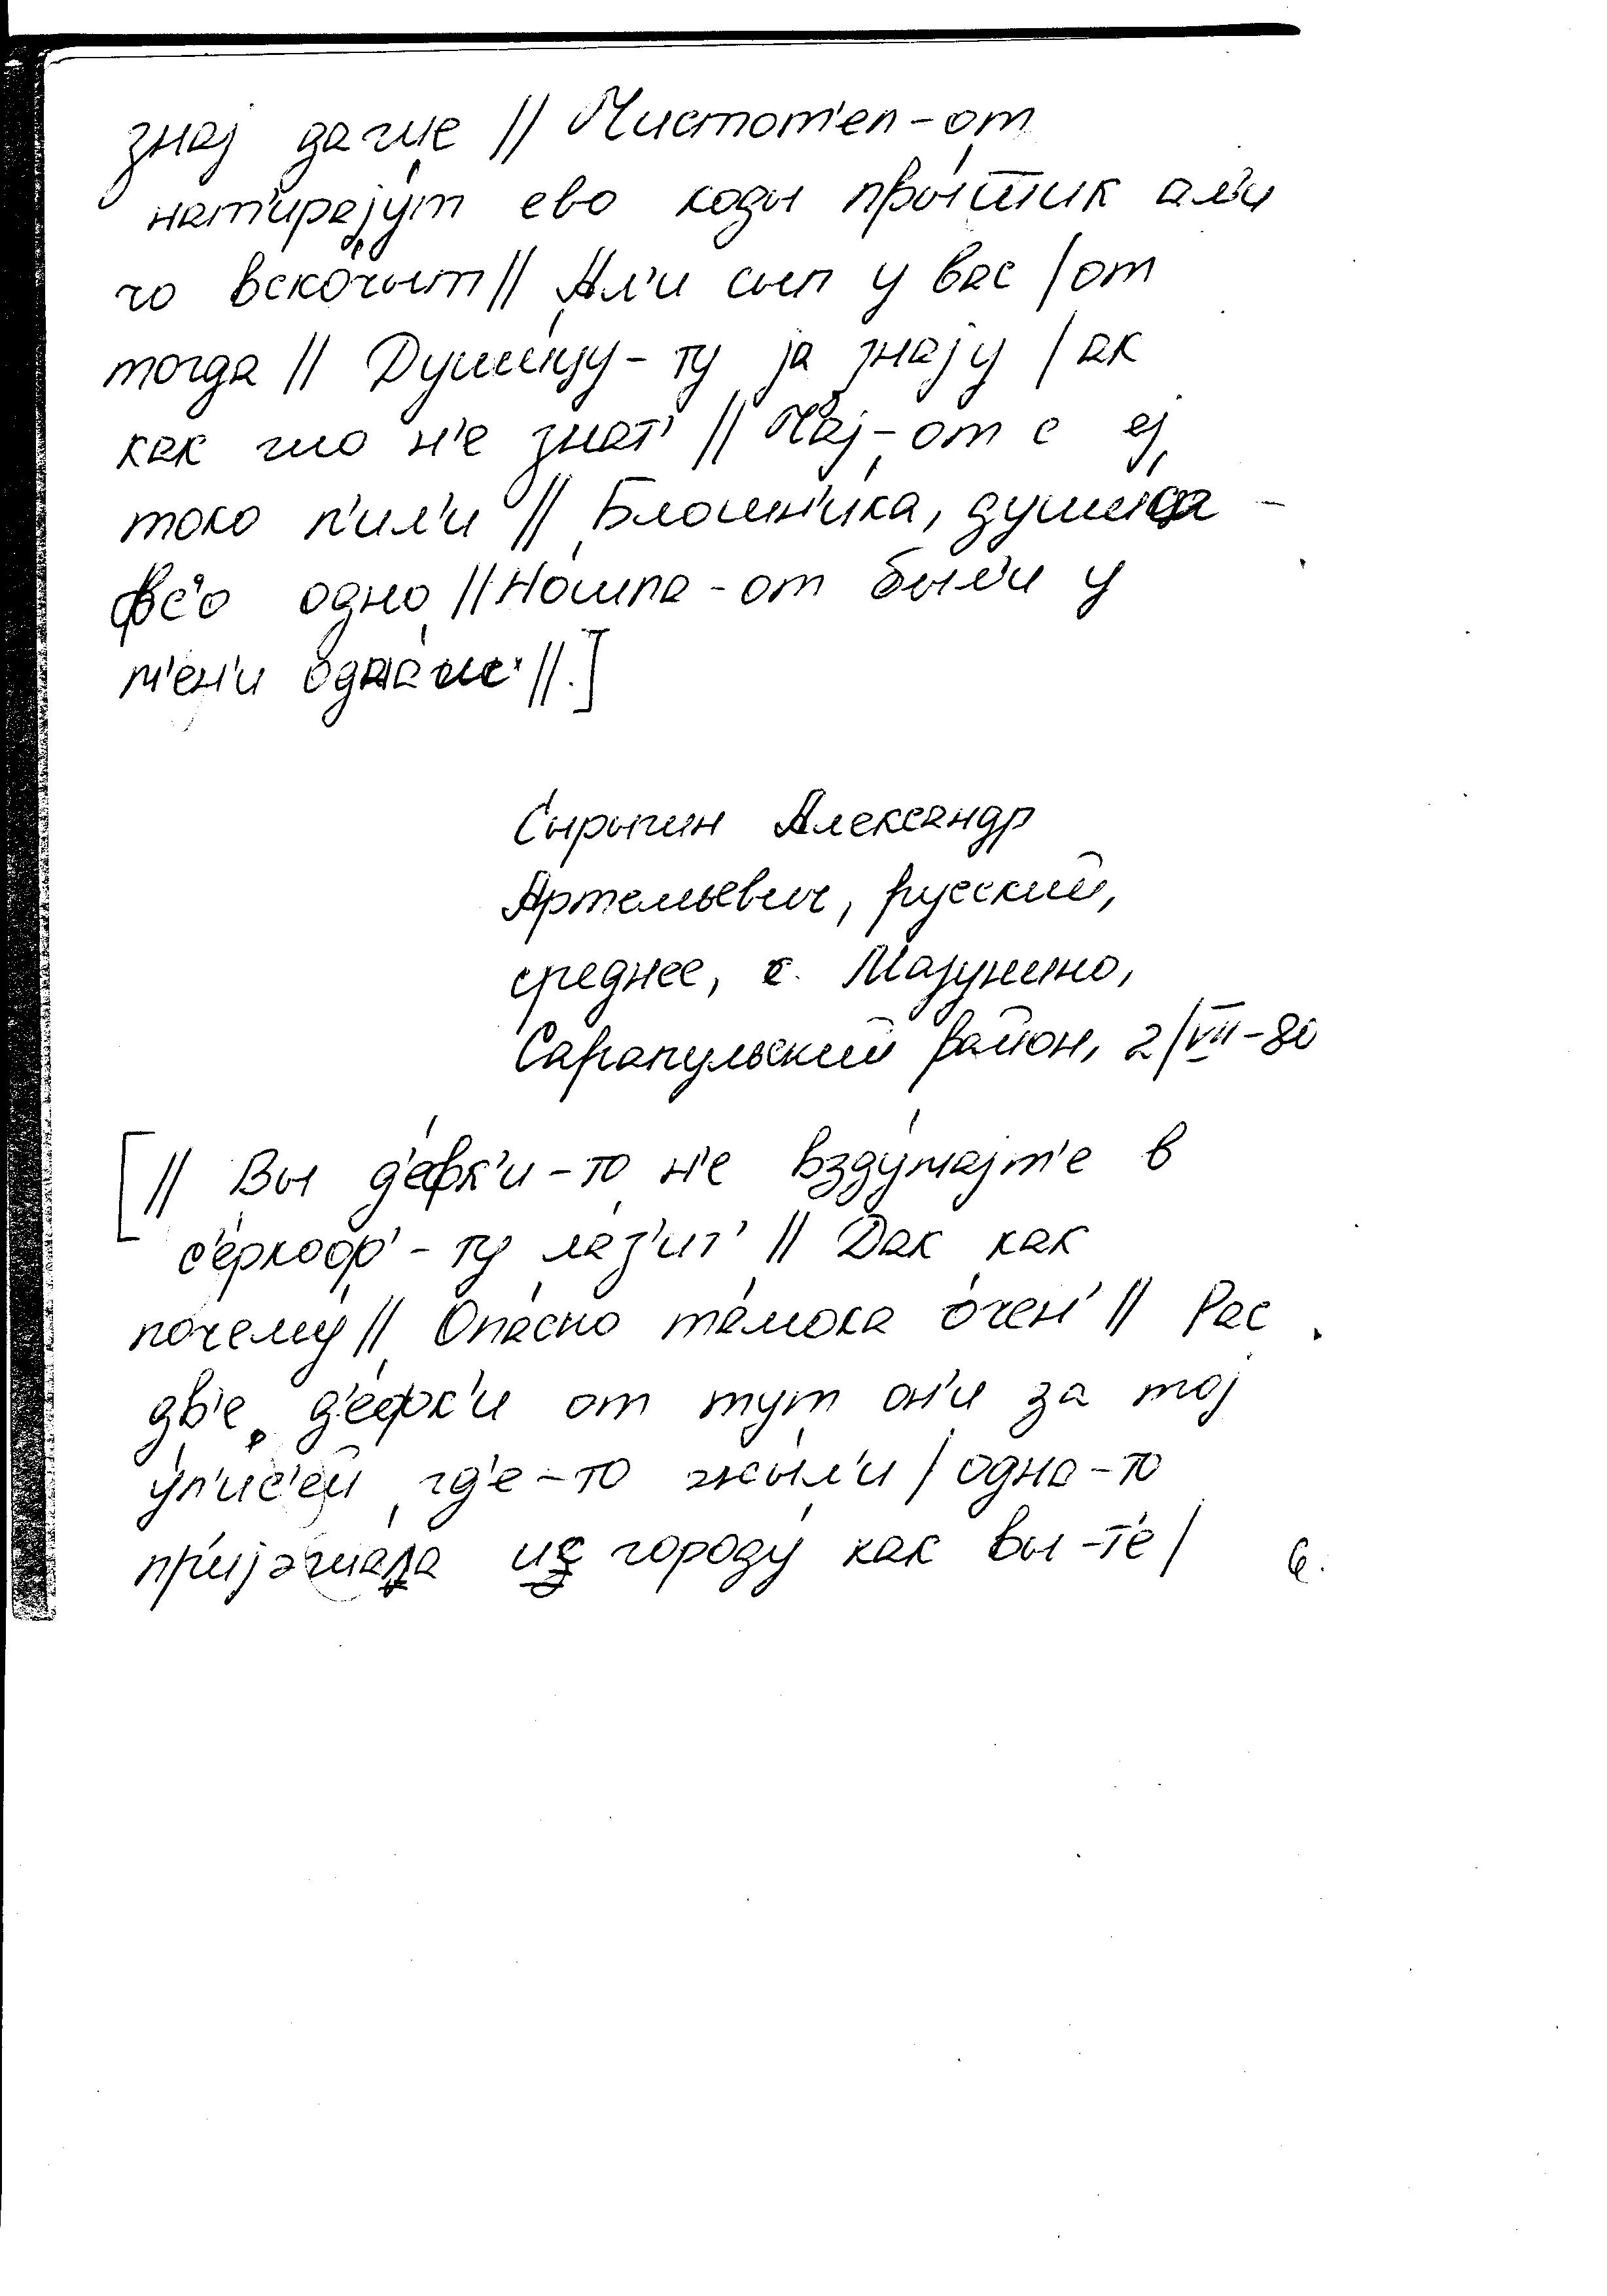 знај даıие // Чистот'ел-от
нат'ирају́т ево коды пры́шшик ал'и
чо вско́чыт // Ал'и сып у вас / от
тогда // Душы́цу-ту ја знају / ак
как жо н'е знат' // Чај-от с ј
токо п'ил'и // Блошн'ика, душыца –
фс'о одно // Ношпа-от был'и у
м'ен'и //.]
Сырыгин Александр
Артемьевич, русский,
среднее, с. Мазунино,
Сарапульский район, 2/VII-80
[// Вы д'е́фк'и-то н'е взду́мајт'е в
с'е́ркоф'-ту ла́з'ит' // Дак как
почему́ // Опа́сно та́мока о́чен' // Рас
дв'е д'е́фк'и от тут он'и за тој
у́л'ис'ей гд'е-то жы́л'и / одна-то
из городу́ как вы-т'е /
6.